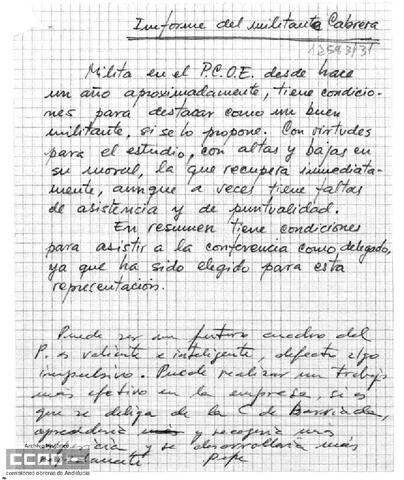 Informe del militante Cabrera
12593/31
Milita en el P.C.O.E. desde hace
un año aproximadamente, tiene condicio-
nes para destacar como un buen
militante, si se lo propone. Con virtudes
para el estudio, con altas y bajas en
su moral, la que recupera inmediata-
mente, aunque a veces tiene faltas
de asistencia y de puntualidad.
En resumen tiene condiciones
para asistir a la conferencia como delegado,
ya que ha sido elegido para esta
representación.
Puede ser un futuro cuadro del
P. es valiente e inteligente, defecto algo
impulsivo. Puede realizar un trabajo
más efectivo en la empresa, si es
que se deliga de la C de Barriada,
aprendería y recogería más
y se desarrollaria más
Pepe
Archivo Histórico
CCOO
comisiones obreras de Andalucía